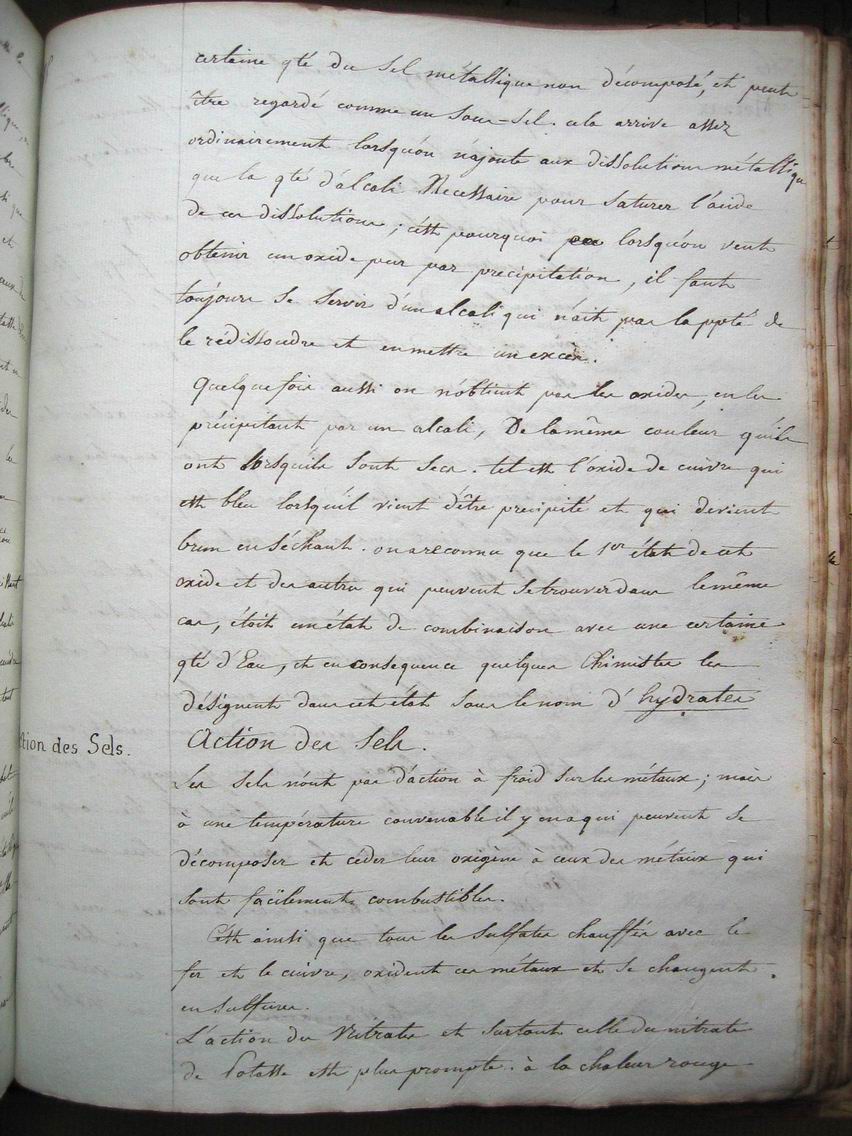 certaine qté du sel métallique non décomposé, et peut-
être regardé comme un sous-sel. cela arrive assez
ordinairement lorsqu'on n'ajoute aux dissolutions métalliqu
que la qté d'alcali Necessaire pour saturer l'acide
de ces dissolutions ; c'est pourquoi lorsqu'on veut
obtenir un oxide pur par precipitation, il faut
toujours se servir d'un alcali qui n'ait pas la ppté de
le redissoudre et en mettre un excès.
Quelquefois aussi on n'obtient pas les oxides, en les
précipitant par un alcali, De la même couleur qu'ils
ont lorsqu'ils sont secs. tel est l'oxide de cuivre qui
est bleu lorsqu'il vient d'être precipité et qui devient
brun en séchant. on a reconnu que le 1er état de cet
oxide et des autres qui peuvent se trouver dans le même
cas, étoit un état de combinaison avec une certaine
qté d'Eau, et en consequence quelques Chimistes les
désignent dans cet état sous le nom d'hydrates
Action des Sels.
tion des Sels.
Les sels n'ont pas d'action à froid sur les métaux ; mais
à une température convenable il y en a qui peuvent se
décomposer et céder leur oxigène à ceux des métaux qui
sont facilement combustibles.
C'est ainsi que tous les sulfates chauffés avec le
fer et le cuivre, oxident ces métaux et se changent
en sulfures.
L'action des Nitrates et surtout celle du nitrate
de Potasse est plus prompte. à la chaleur rouge